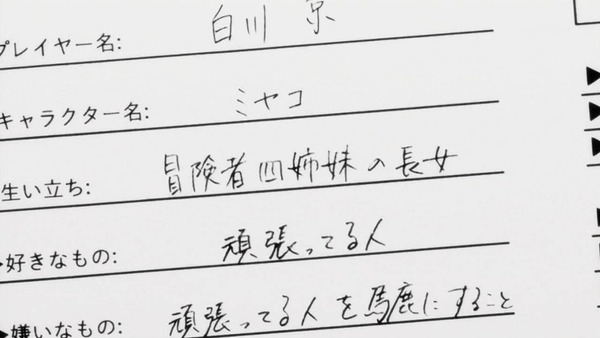 プレイヤー名: 白川 京
キャラクター名: ミヤコ
生い立ち: 冒険者四姉妹の長女
好きなもの: 頑張ってる人
▶嫌いなもの: 頑張ってる人を馬鹿にすること